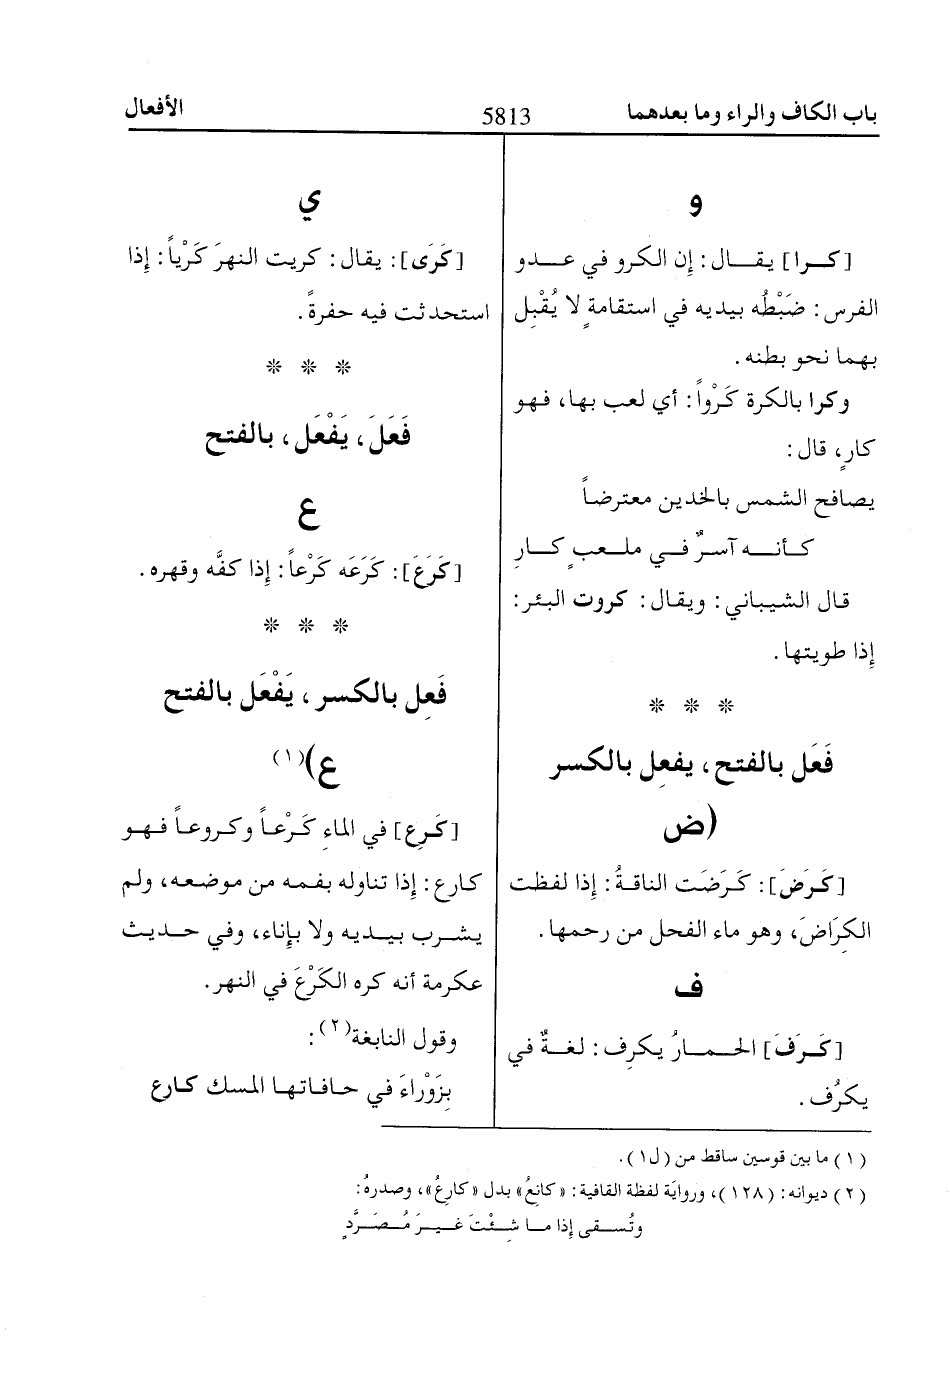 باب الكاف والراء وما بعدهما
5813
الأفعال
و
[كـرا] يقـال: إن الكرو في عـدو
الفرس: ضَبْطُه بيديه في استقامةٍ لا يُقْبِل
بهما نحو بطنه.
وكرا بالكرة كَرْواً: أي لعب بها، فهو
كارٍ، قال:
يصافح الشمس بالخدين معترضاً
كـأنـه آسرٌ فـي ملعبٍ كـارِ
قال الشيباني: ويقال: كروت البئر:
إذا طويتها.
* * *
فَعَل بالفتح، يفعِل بالكسر
(ض
[كَرَضَ]: كَرَضَت الناقةُ: إذا لفظت
الكِرَاضَ، وهو ماء الفحل من رحمها.
ف
[كَرَفَ] الحمـارُ يكرِف: لغةٌ في
يكرُف.
ي
[كَرَى]: يقال: كريت النهرَ كَرْياً: إذا
استحدثت فيه حفرةً.
* * *
فَعَلَ، يَفْعَل، بالفتح
ع
[كَرَعَ]: كَرَعَه كَرْعاً: إذا كفَّه وقهره.
* * *
فَعِل بالكسر، يَفْعَل بالفتح
ع)(١)
[كَرِع] في الماءِ كَرْعـاً وكروعـاً فهـو
كارع: إذا تناوله بفمه من موضعه، ولم
يشرب بيديه ولا بإناء، وفي حـديث
عكرمة أنه كره الكَرْعَ في النهر.
وقول النابغة(٢):
بِزَوْراءَ في حافاتها المسك كارع
(١) ما بين قوسين ساقط من (ل١).
(٢) ديوانه: (١٢٨)، ورواية لفظة القافية: «كانِعُ» بدل «كارِعُ»، وصدرهُ:
وتُسـقى إذا مـا شِئْتَ غيـرَ مُصَرَّدٍ